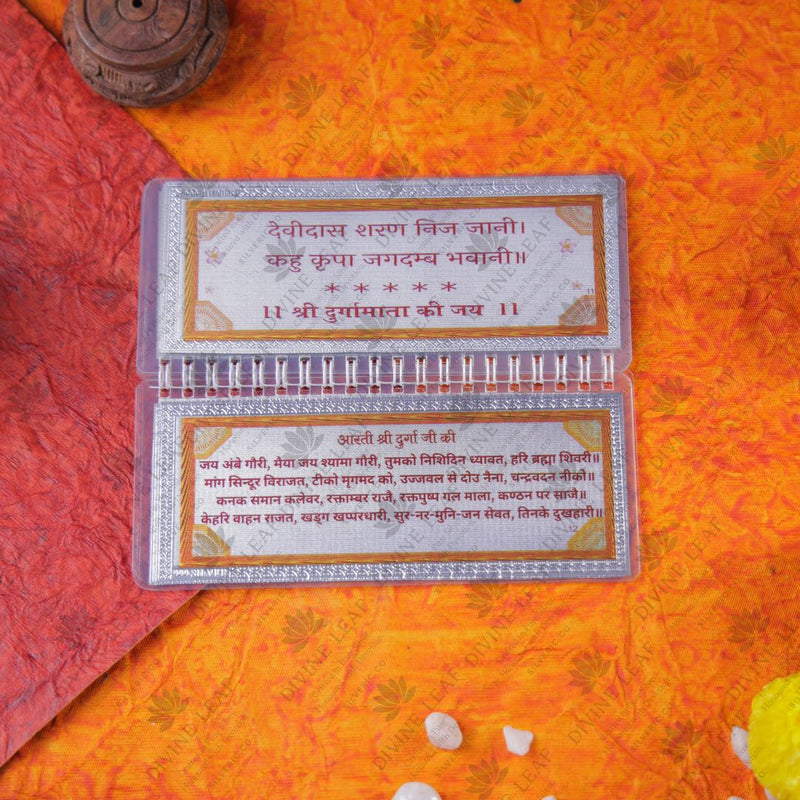 देवीदास शरण निज जानी।
कहु कृपा जगदम्ब भवानी॥
* * * * *
।। श्री दुर्गामाता की जय ।।
11
आरती श्री दुर्गा जी की
जय अंबे गौरी, मैया जय श्यामा गौरी, तुमको निशिदिन ध्यावत, हरि ब्रह्मा शिवरी॥
मांग सिन्दूर विराजत, टीको मृगमद को, उज्जवल से दोउ नैना, चन्द्रवदन नीको॥
कनक समान कलेवर, रक्ताम्बर राजै, रक्तपुष्प गल माला, कण्ठन पर साजे॥
केहरि वाहन राजत, खड्ग खप्परधारी, सुर-नर-मुनि-जन सेवत, तिनके दुखहारी॥
12
999 SILVER
DIVINE LEAF
SILVERIC CO